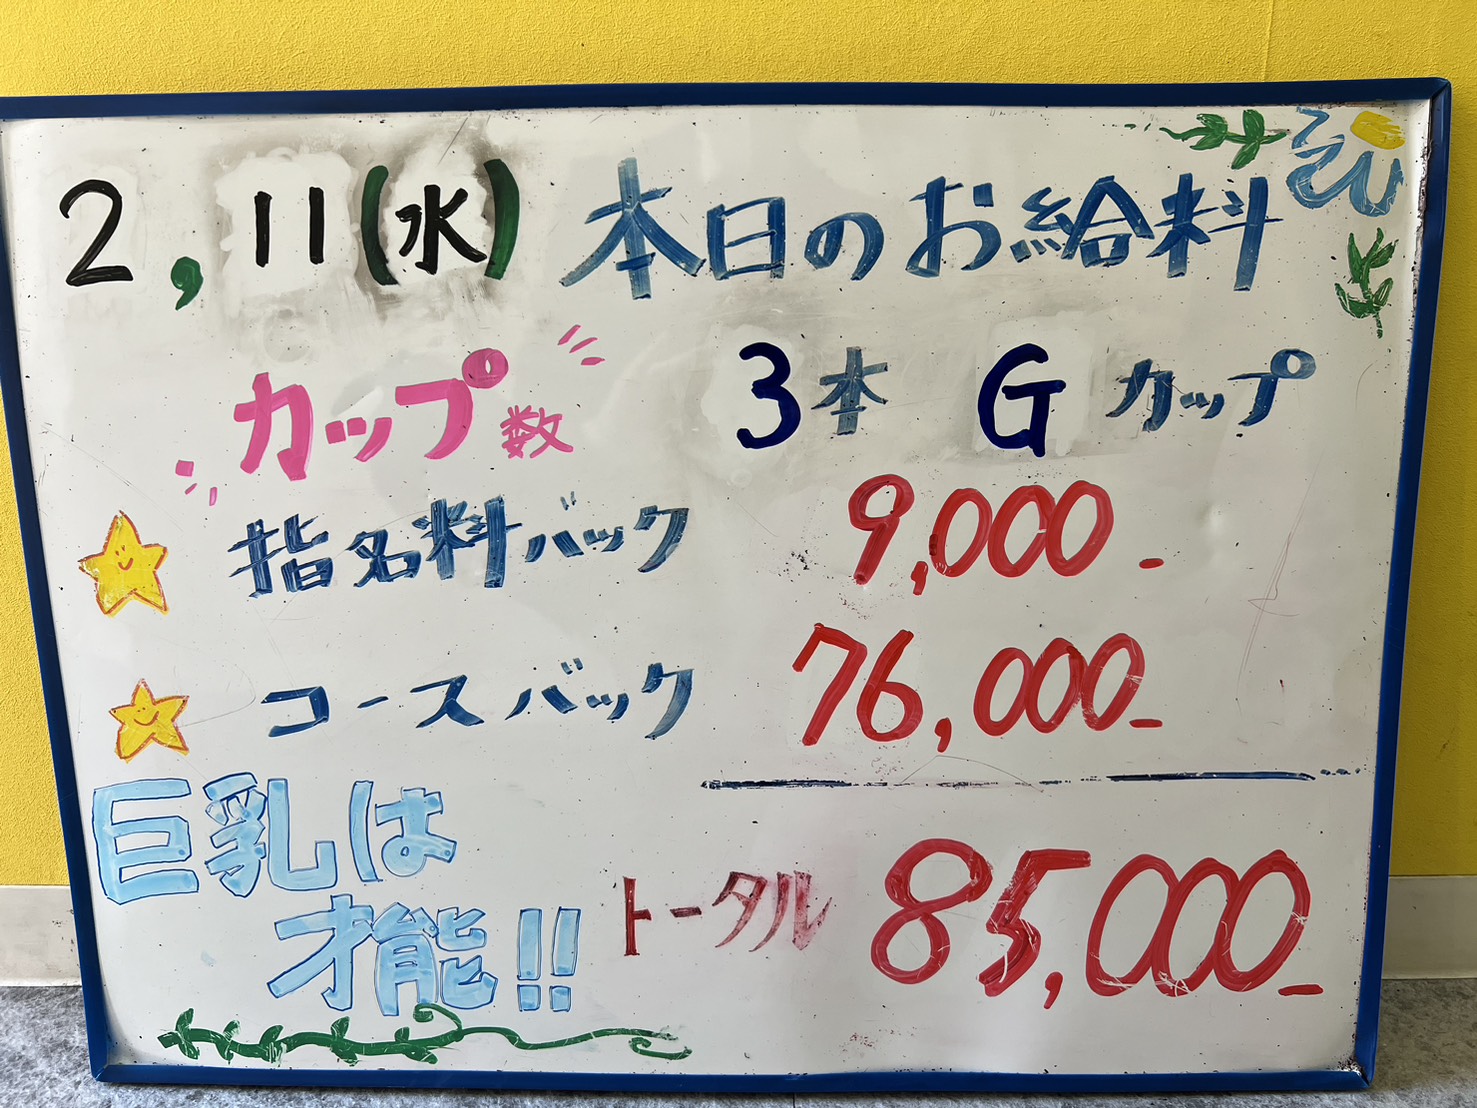 2,11(水) 本日のお給料
カップ数 3本 Gカップ
指名料バック 9,000-
コースバック 76,000-
巨乳は
才能!!
トータル 85,000-